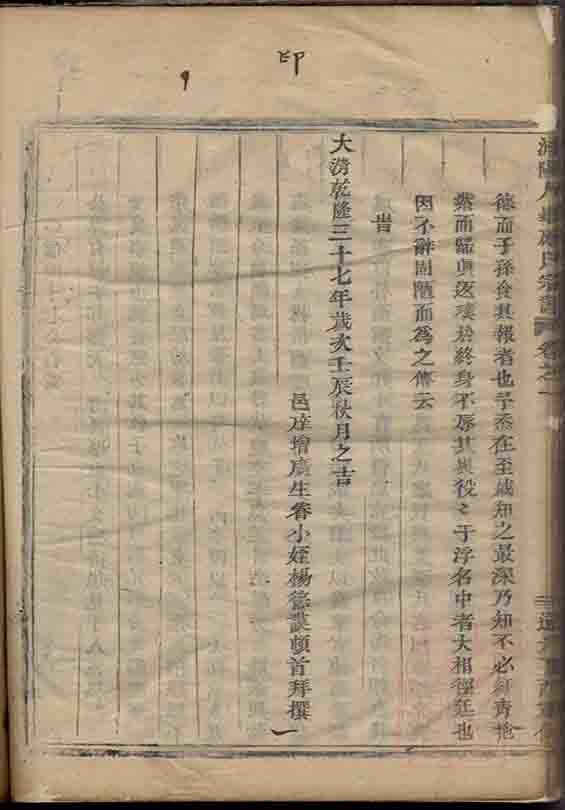 印
德而子孫食其報者也予忝在至戚知之最深乃知不必紆青拖
然而歸真返璞於終身不辱其與役〻于浮名中者大相徑廷也
因不辭固陋而為之傳云
旹
大清乾隆三十七年歲次壬辰秋月之吉
邑庠增廣生眷小姪楊德謨頓首拜撰
氏宗譜
卷之一